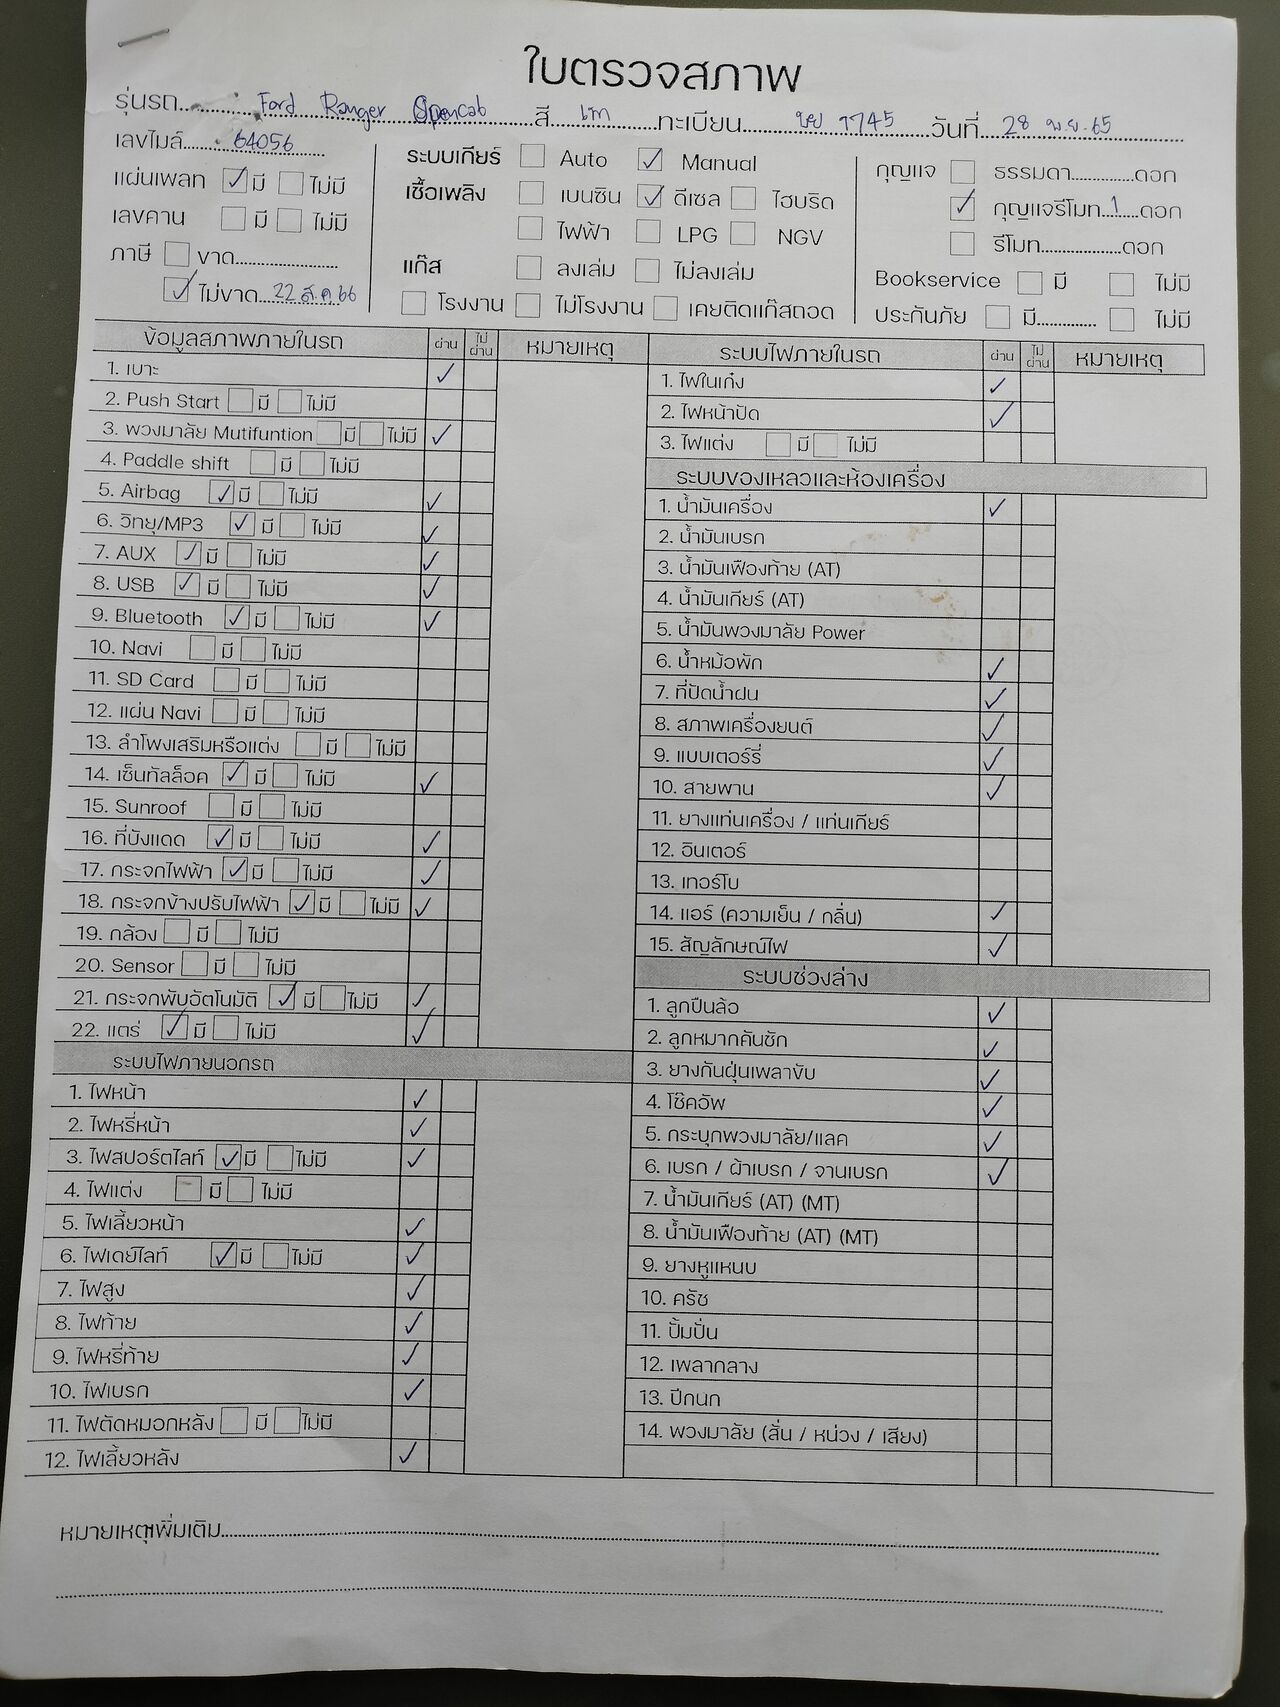 ใบตรวจสภาพ
รุ่นรถ Ford Ranger Opencab สี เทา ทะเบียน 1745 วันที่ 28 พ.ย. 65
เลขไมล์ 64056
แผ่นเพลท ☑ มี ☐ ไม่มี
เลขคาน ☐ มี ☐ ไม่มี
ภาษี ☐ ขาด
☑ ไม่ขาด 22 ส.ค 66
ระบบเกียร์ ☐ Auto ☑ Manual
เชื้อเพลิง ☐ เบนซิน ☑ ดีเซล ☐ ไฮบริด
☐ ไฟฟ้า ☐ LPG ☐ NGV
แก๊ส ☐ ลงเล่ม ☐ ไม่ลงเล่ม
☐ โรงงาน ☐ ไม่โรงงาน ☐ เคยติดแก๊สถอด
กุญแจ ☐ ธรรมดา.............ดอก
☑ กุญแจรีโมท 1 ดอก
☐ รีโมท.................ดอก
Bookservice ☐ มี ☐ ไม่มี
ประกันภัย ☐ มี............. ☐ ไม่มี
ข้อมูลสภาพภายในรถ ผ่าน ไม่ผ่าน หมายเหตุ
1. เบาะ ✓
2. Push Start ☐ มี ☐ ไม่มี
3. พวงมาลัย Mutifuntion ☐ มี ☐ ไม่มี ✓
4. Paddle shift ☐ มี ☐ ไม่มี
5. Airbag ☑ มี ☐ ไม่มี ✓
6. วิทยุ/MP3 ☑ มี ☐ ไม่มี ✓
7. AUX ☑ มี ☐ ไม่มี ✓
8. USB ☑ มี ☐ ไม่มี ✓
9. Bluetooth ☑ มี ☐ ไม่มี ✓
10. Navi ☐ มี ☐ ไม่มี
11. SD Card ☐ มี ☐ ไม่มี
12. แผ่น Navi ☐ มี ☐ ไม่มี
13. ลำโพงเสริมหรือแต่ง ☐ มี ☐ ไม่มี
14. เซ็นทัลล็อค ☑ มี ☐ ไม่มี ✓
15. Sunroof ☐ มี ☐ ไม่มี
16. ที่บังแดด ☑ มี ☐ ไม่มี ✓
17. กระจกไฟฟ้า ☑ มี ☐ ไม่มี ✓
18. กระจกข้างปรับไฟฟ้า ☑ มี ☐ ไม่มี ✓
19. กล้อง ☐ มี ☐ ไม่มี
20. Sensor ☐ มี ☐ ไม่มี
21. กระจกพับอัตโนมัติ ☑ มี ☐ ไม่มี ✓
22. แตร่ ☑ มี ☐ ไม่มี ✓
ระบบไฟภายนอกรถ
1. ไฟหน้า ✓
2. ไฟหรี่หน้า ✓
3. ไฟสปอร์ตไลท์ ☑ มี ☐ ไม่มี ✓
4. ไฟแต่ง ☐ มี ☐ ไม่มี
5. ไฟเลี้ยวหน้า ✓
6. ไฟเดย์ไลท์ ☑ มี ☐ ไม่มี ✓
7. ไฟสูง ✓
8. ไฟท้าย ✓
9. ไฟหรี่ท้าย ✓
10. ไฟเบรก ✓
11. ไฟตัดหมอกหลัง ☐ มี ☐ ไม่มี
12. ไฟเลี้ยวหลัง ✓
ระบบไฟภายในรถ ผ่าน ไม่ผ่าน หมายเหตุ
1. ไฟในเก๋ง ✓
2. ไฟหน้าปัด ✓
3. ไฟแต่ง ☐ มี ☐ ไม่มี
ระบบของเหลวและห้องเครื่อง
1. น้ำมันเครื่อง ✓
2. น้ำมันเบรก
3. น้ำมันเฟืองท้าย (AT)
4. น้ำมันเกียร์ (AT)
5. น้ำมันพวงมาลัย Power
6. น้ำหม้อพัก ✓
7. ที่ปัดน้ำฝน ✓
8. สภาพเครื่องยนต์ ✓
9. แบบเตอร์รี่ ✓
10. สายพาน ✓
11. ยางแท่นเครื่อง / แท่นเกียร์
12. อินเตอร์
13. เทอร์โบ
14. แอร์ (ความเย็น / กลิ่น) ✓
15. สัญลักษณ์ไฟ ✓
ระบบช่วงล่าง
1. ลูกปืนล้อ ✓
2. ลูกหมากคันชัก ✓
3. ยางกันฝุ่นเพลาขับ ✓
4. โช๊คอัพ ✓
5. กระบุกพวงมาลัย/แลค ✓
6. เบรก / ผ้าเบรก / จานเบรก ✓
7. น้ำมันเกียร์ (AT) (MT)
8. น้ำมันเฟืองท้าย (AT) (MT)
9. ยางหูแหนบ
10. ครัช
11. ปั้มปั่น
12. เพลากลาง
13. ปีกนก
14. พวงมาลัย (สั่น / หน่วง / เสียง)
หมายเหตุเพิ่มเติม